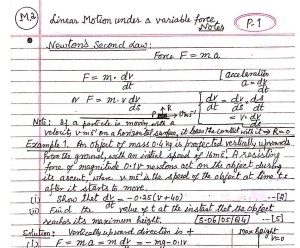 M2 Linear Motion under a variable force
Notes P.1
Newton's Second Law:
Force F = ma
F = m·dv/dt [acceleration a = dv/dt
or F = m·v dv/ds [dv/dt = dv/ds·ds/dt
= v·dv/ds
R
v ms⁻¹
Note: If a particle is moving with a
velocity v ms⁻¹ on a horizontal surface, it loses the contact with it → R=0
Example 1. An object of mass 0.4 kg is projected vertically upwards
from the ground, with an initial speed of 16 ms⁻¹. A resisting
force of magnitude 0.1v newtons act on the object during
its ascent, where v ms⁻¹ is the speed of the object at time t s
after it starts to move.
(i) Show that dv/dt = -0.25(v+40) [2]
(ii) Find the value of t at the instant that the object
reaches its maximum height. [5]
Solution: Vertically upward direction is + Max height v=0
(i) F = ma = m dv/dt = -mg-0.1v